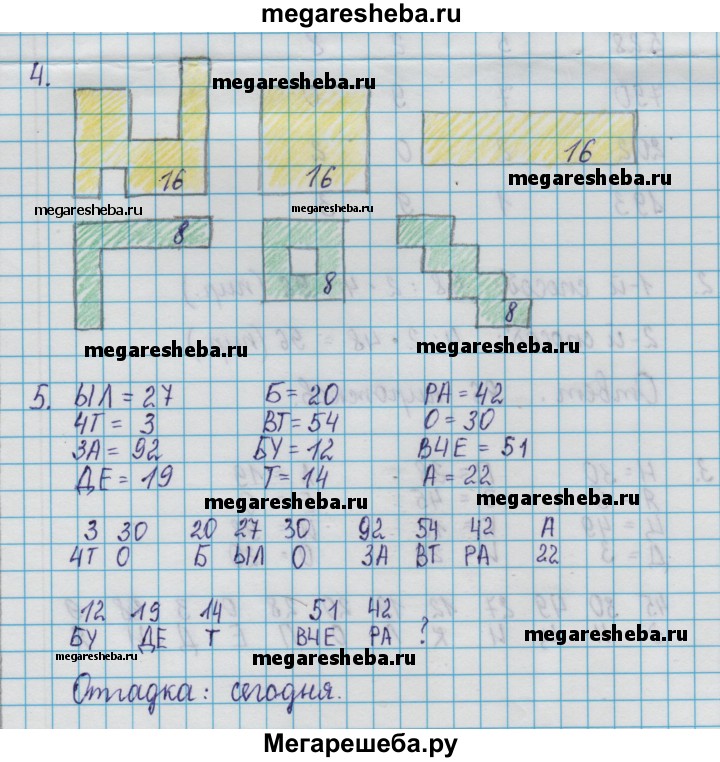 megaresheba.ru
4.
megaresheba.ru
16
16
16
megaresheba.ru
megaresheba.ru
megaresheba.ru
8
8
8
megaresheba.ru
megaresheba.ru
5. ЫЛ = 27 Б = 20 РА = 42
ЧТ = 3 ВТ = 54 О = 30
ЗА = 92 БУ = 12 ВЧЕ = 51
ДЕ = 19 Т = 14 А = 22
megaresheba.ru
megaresheba.ru
3 30 20 27 30 92 54 42 А
ЧТ О Б ЫЛ О ЗА ВТ РА 22
12 19 14 51 42
БУ ДЕ Т ВЧЕ РА ?
megaresheba.ru
megaresheba.ru
megaresheba.ru
Отгадка: сегодня.
Мегарешеба.ру